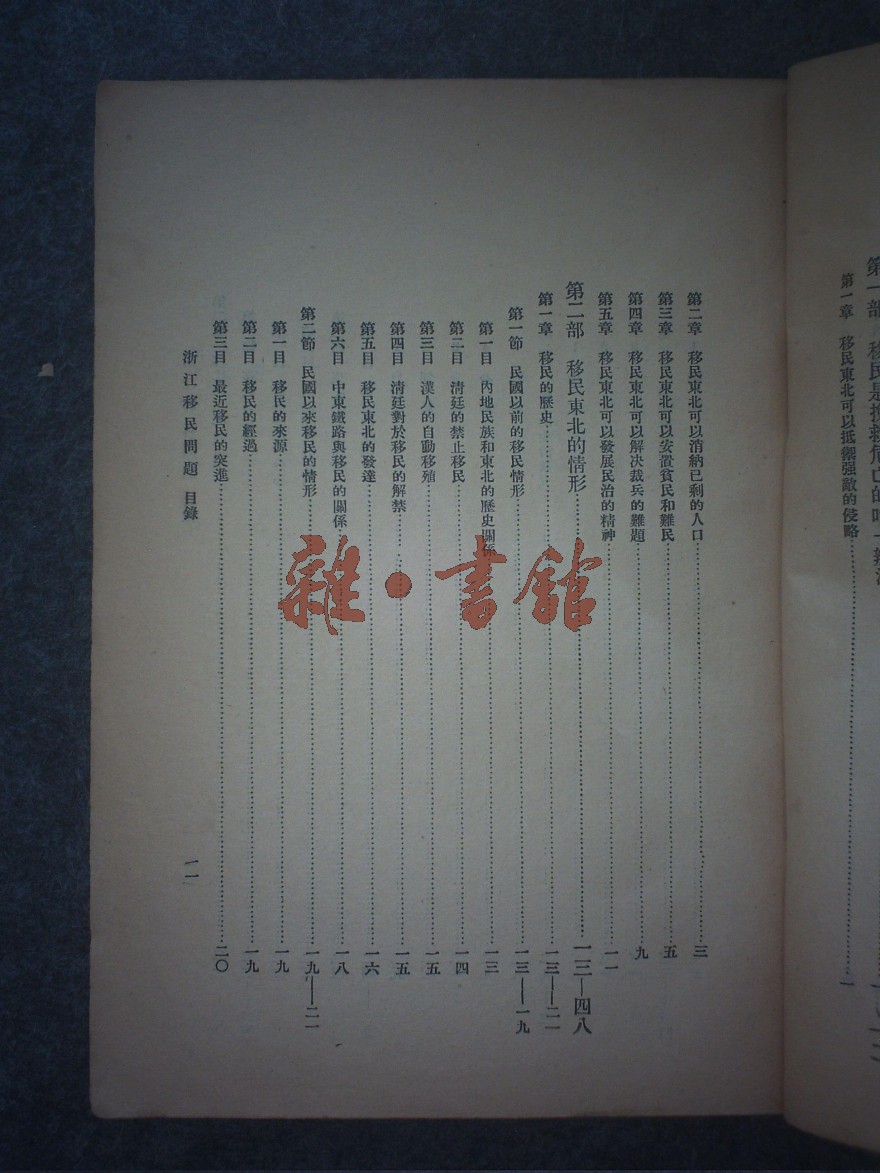 第一部 移民是挽救危亡的唯一辦法
第一章 移民東北可以抵禦强敵的侵略……一
第二章 移民東北可以消納已剩的人口……三
第三章 移民東北可以安置貧民和難民……五
第四章 移民東北可以解決裁兵的難題……九
第五章 移民東北可以發展民治的精神……一一
第二部 移民東北的情形……一三—四八
第一章 移民的歷史……一三—二一
第一節 民國以前的移民情形……一三—一九
第一目 內地民族和東北的歷史關係……一三
第二目 清廷的禁止移民……一四
第三目 漢人的自動移殖……一五
第四目 清廷對於移民的解禁……一五
第五目 移民東北的發達……一六
第六目 中東鐵路與移民的關係……一八
第二節 民國以來移民的情形……一九—二一
第一目 移民的來源……一九
第二目 移民的經過……一九
第三目 最近移民的突進……二〇
浙江移民問題 目錄 二
雜·書館